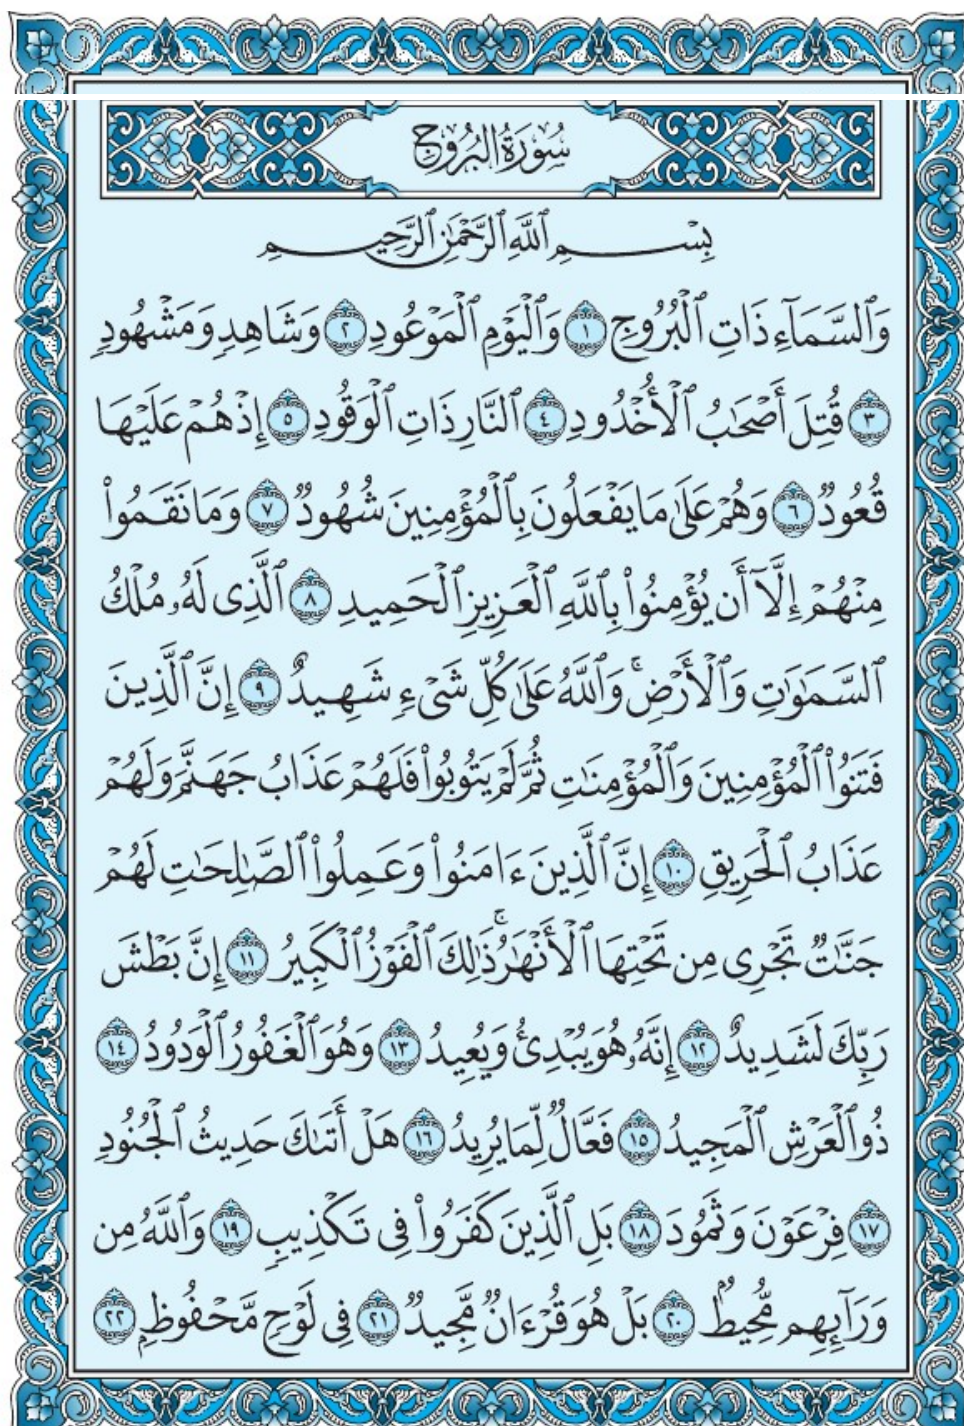 سُورَةُ البُرُوج
بِسْمِ ٱللَّهِ ٱلرَّحْمَٰنِ ٱلرَّحِيمِ
وَٱلسَّمَآءِ ذَاتِ ٱلْبُرُوجِ ١ وَٱلْيَوْمِ ٱلْمَوْعُودِ ٢ وَشَاهِدٍ وَمَشْهُودٍ
٣ قُتِلَ أَصْحَٰبُ ٱلْأُخْدُودِ ٤ ٱلنَّارِ ذَاتِ ٱلْوَقُودِ ٥ إِذْ هُمْ عَلَيْهَا
قُعُودٌ ٦ وَهُمْ عَلَىٰ مَا يَفْعَلُونَ بِٱلْمُؤْمِنِينَ شُهُودٌ ٧ وَمَا نَقَمُوا۟
مِنْهُمْ إِلَّآ أَن يُؤْمِنُوا۟ بِٱللَّهِ ٱلْعَزِيزِ ٱلْحَمِيدِ ٨ ٱلَّذِى لَهُۥ مُلْكُ
ٱلسَّمَٰوَٰتِ وَٱلْأَرْضِ ۚ وَٱللَّهُ عَلَىٰ كُلِّ شَىْءٍ شَهِيدٌ ٩ إِنَّ ٱلَّذِينَ
فَتَنُوا۟ ٱلْمُؤْمِنِينَ وَٱلْمُؤْمِنَٰتِ ثُمَّ لَمْ يَتُوبُوا۟ فَلَهُمْ عَذَابُ جَهَنَّمَ وَلَهُمْ
عَذَابُ ٱلْحَرِيقِ ١٠ إِنَّ ٱلَّذِينَ ءَامَنُوا۟ وَعَمِلُوا۟ ٱلصَّٰلِحَٰتِ لَهُمْ
جَنَّٰتٌ تَجْرِى مِن تَحْتِهَا ٱلْأَنْهَٰرُ ۚ ذَٰلِكَ ٱلْفَوْزُ ٱلْكَبِيرُ ١١ إِنَّ بَطْشَ
رَبِّكَ لَشَدِيدٌ ١٢ إِنَّهُۥ هُوَ يُبْدِئُ وَيُعِيدُ ١٣ وَهُوَ ٱلْغَفُورُ ٱلْوَدُودُ ١٤
ذُو ٱلْعَرْشِ ٱلْمَجِيدُ ١٥ فَعَّالٌ لِّمَا يُرِيدُ ١٦ هَلْ أَتَىٰكَ حَدِيثُ ٱلْجُنُودِ
١٧ فِرْعَوْنَ وَثَمُودَ ١٨ بَلِ ٱلَّذِينَ كَفَرُوا۟ فِى تَكْذِيبٍ ١٩ وَٱللَّهُ مِن
وَرَآئِهِم مُّحِيطٌۢ ٢٠ بَلْ هُوَ قُرْءَانٌ مَّجِيدٌ ٢١ فِى لَوْحٍ مَّحْفُوظٍۭ ٢٢